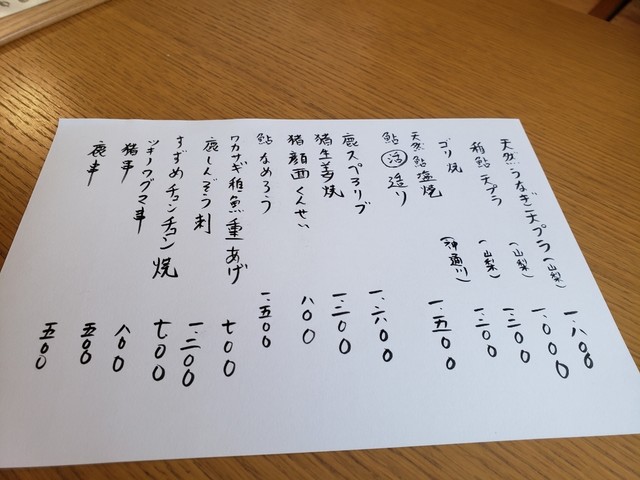 天然うなぎ天プラ(山梨) 一.八〇〇
稚鮎天プラ(山梨) 一.〇〇〇
ゴリ焼(山梨) 一.二〇〇
天然鮎塩焼(神通川) 一.二〇〇
鮎活造り 一.五〇〇
鹿スペアリブ 一.六〇〇
猪生姜焼 一.二〇〇
猪顔面くんせい 八〇〇
鮎なめろう 一.五〇〇
ワカサギ稚魚重あげ 七〇〇
鹿しんぞう刺 一.二〇〇
すずめチョンチョン焼 七〇〇
ツキノワグマ串 八〇〇
猪串 五〇〇
鹿串 五〇〇